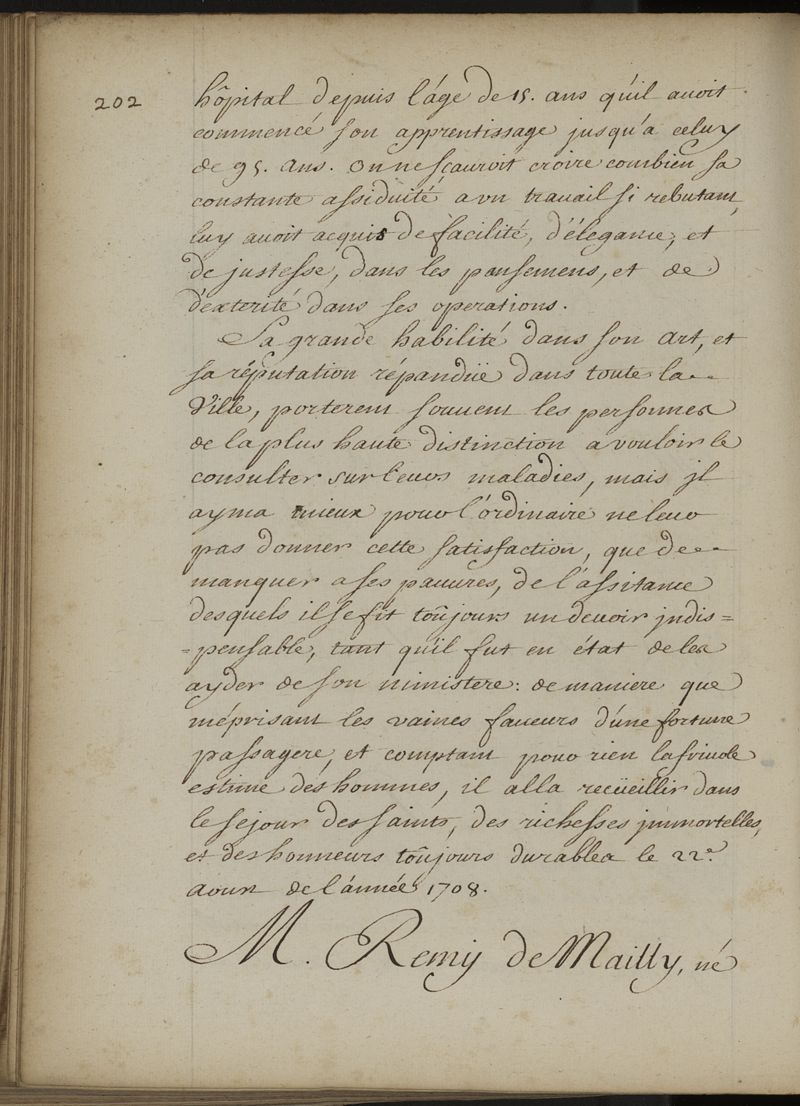 202
hôpital depuis l'áge de 15. ans qu'il auoit
commencé son apprentissage jusqu'a celuy
de 95. ans. on ne sçauroit croire combien sa
constante assiduité a vn trauail si rebutant,
luy auoit acquis de facilité, d'élegance, et
de justesse, dans les pansemens, et de
d'exterité dans ses operations.
Sa grande habilité dans son art, et
sa réputation répandüe dans toute la
Ville, porterent souuent les personnes
de la plus haute distinction a vouloir le
consulter sur leurs maladies, mais jl
ayma mieux pour l'ordinaire ne leur
pas donner cette satisfaction, que de
manquer a ses pauures, de l'assitance
desquels il se fit toûjours un deuoir jndis=
=pensable, tant qu'il fut en état de les
ayder de son ministere: de maniere que
méprisant les vaines faueurs d'une fortune
passagere, et comptant pour rien la friuole
estime des hommes, il alla recüeillir dans
le séjour des saints, des richesses jmmortelles,
et des honneurs toûjours durables le 22.e
aoust de l'année 1708.
M. Remy de Mailly, né